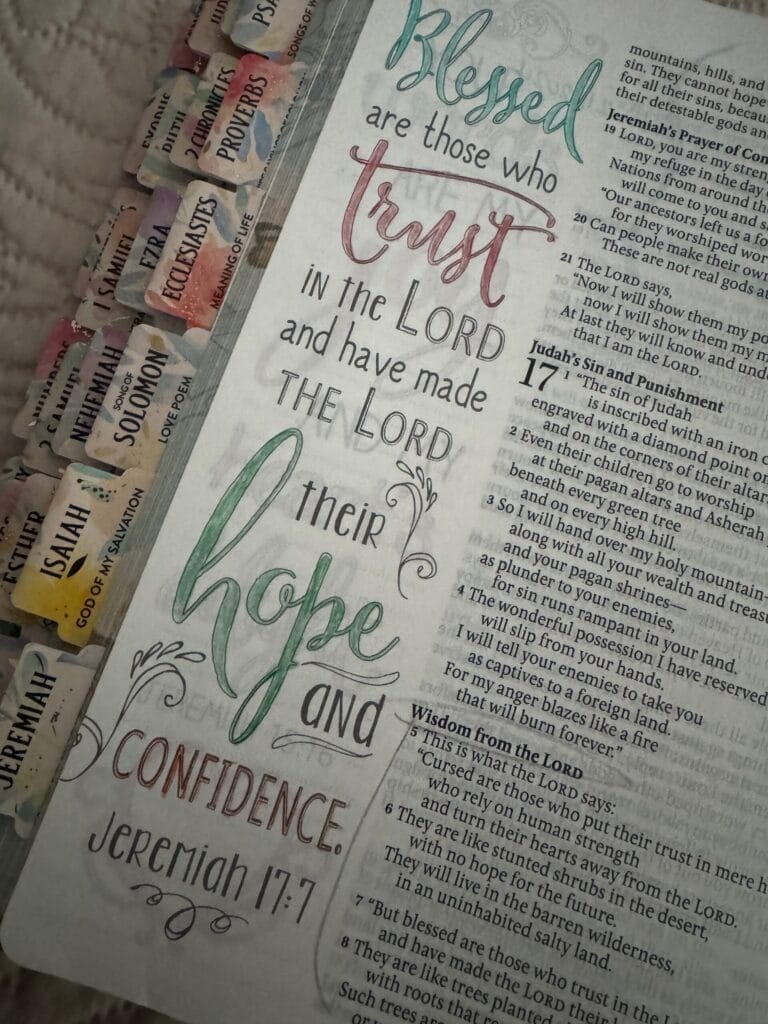 PSA
SONGS OF W
PROVERBS
2 CHRONICLES
RUTH
EXODUS
ECCLESIASTES
MEANING OF LIFE
EZRA
1 SAMUEL
SONG OF
SOLOMON
LOVE POEM
NEHEMIAH
2 SAMUEL
NUMBERS
ISAIAH
GOD OF MY SALVATION
ESTHER
JEREMIAH
Blessed
are those who
trust
in the LORD
and have made
THE LORD
their
hope
and
CONFIDENCE.
Jeremiah 17:7
mountains, hills, and
sin. They cannot hope
for all their sins, because
their detestable gods an
Jeremiah's Prayer of Con
19 LORD, you are my streng
my refuge in the day o
Nations from around the
will come to you and sa
"Our ancestors left us a fo
for they worshiped wor
20 Can people make their own
These are not real gods at
21 The LORD says,
"Now I will show them my po
now I will show them my m
At last they will know and unde
that I am the LORD.
Judah's Sin and Punishment
17 1 "The sin of Judah
is inscribed with an iron c
engraved with a diamond point on
and on the corners of their altar
2 Even their children go to worship
at their pagan altars and Asherah
beneath every green tree
and on every high hill.
3 So I will hand over my holy mountain—
along with all your wealth and treasu
and your pagan shrines—
as plunder to your enemies,
for sin runs rampant in your land.
4 The wonderful possession I have reserved
will slip from your hands.
I will tell your enemies to take you
as captives to a foreign land.
For my anger blazes like a fire
that will burn forever."
Wisdom from the LORD
5 This is what the LORD says:
"Cursed are those who put their trust in mere h
who rely on human strength
and turn their hearts away from the LORD.
6 They are like stunted shrubs in the desert,
with no hope for the future.
They will live in the barren wilderness,
in an uninhabited salty land.
7 "But blessed are those who trust in the L
and have made the LORD their h
8 They are like trees planted
with roots that re
Such trees are